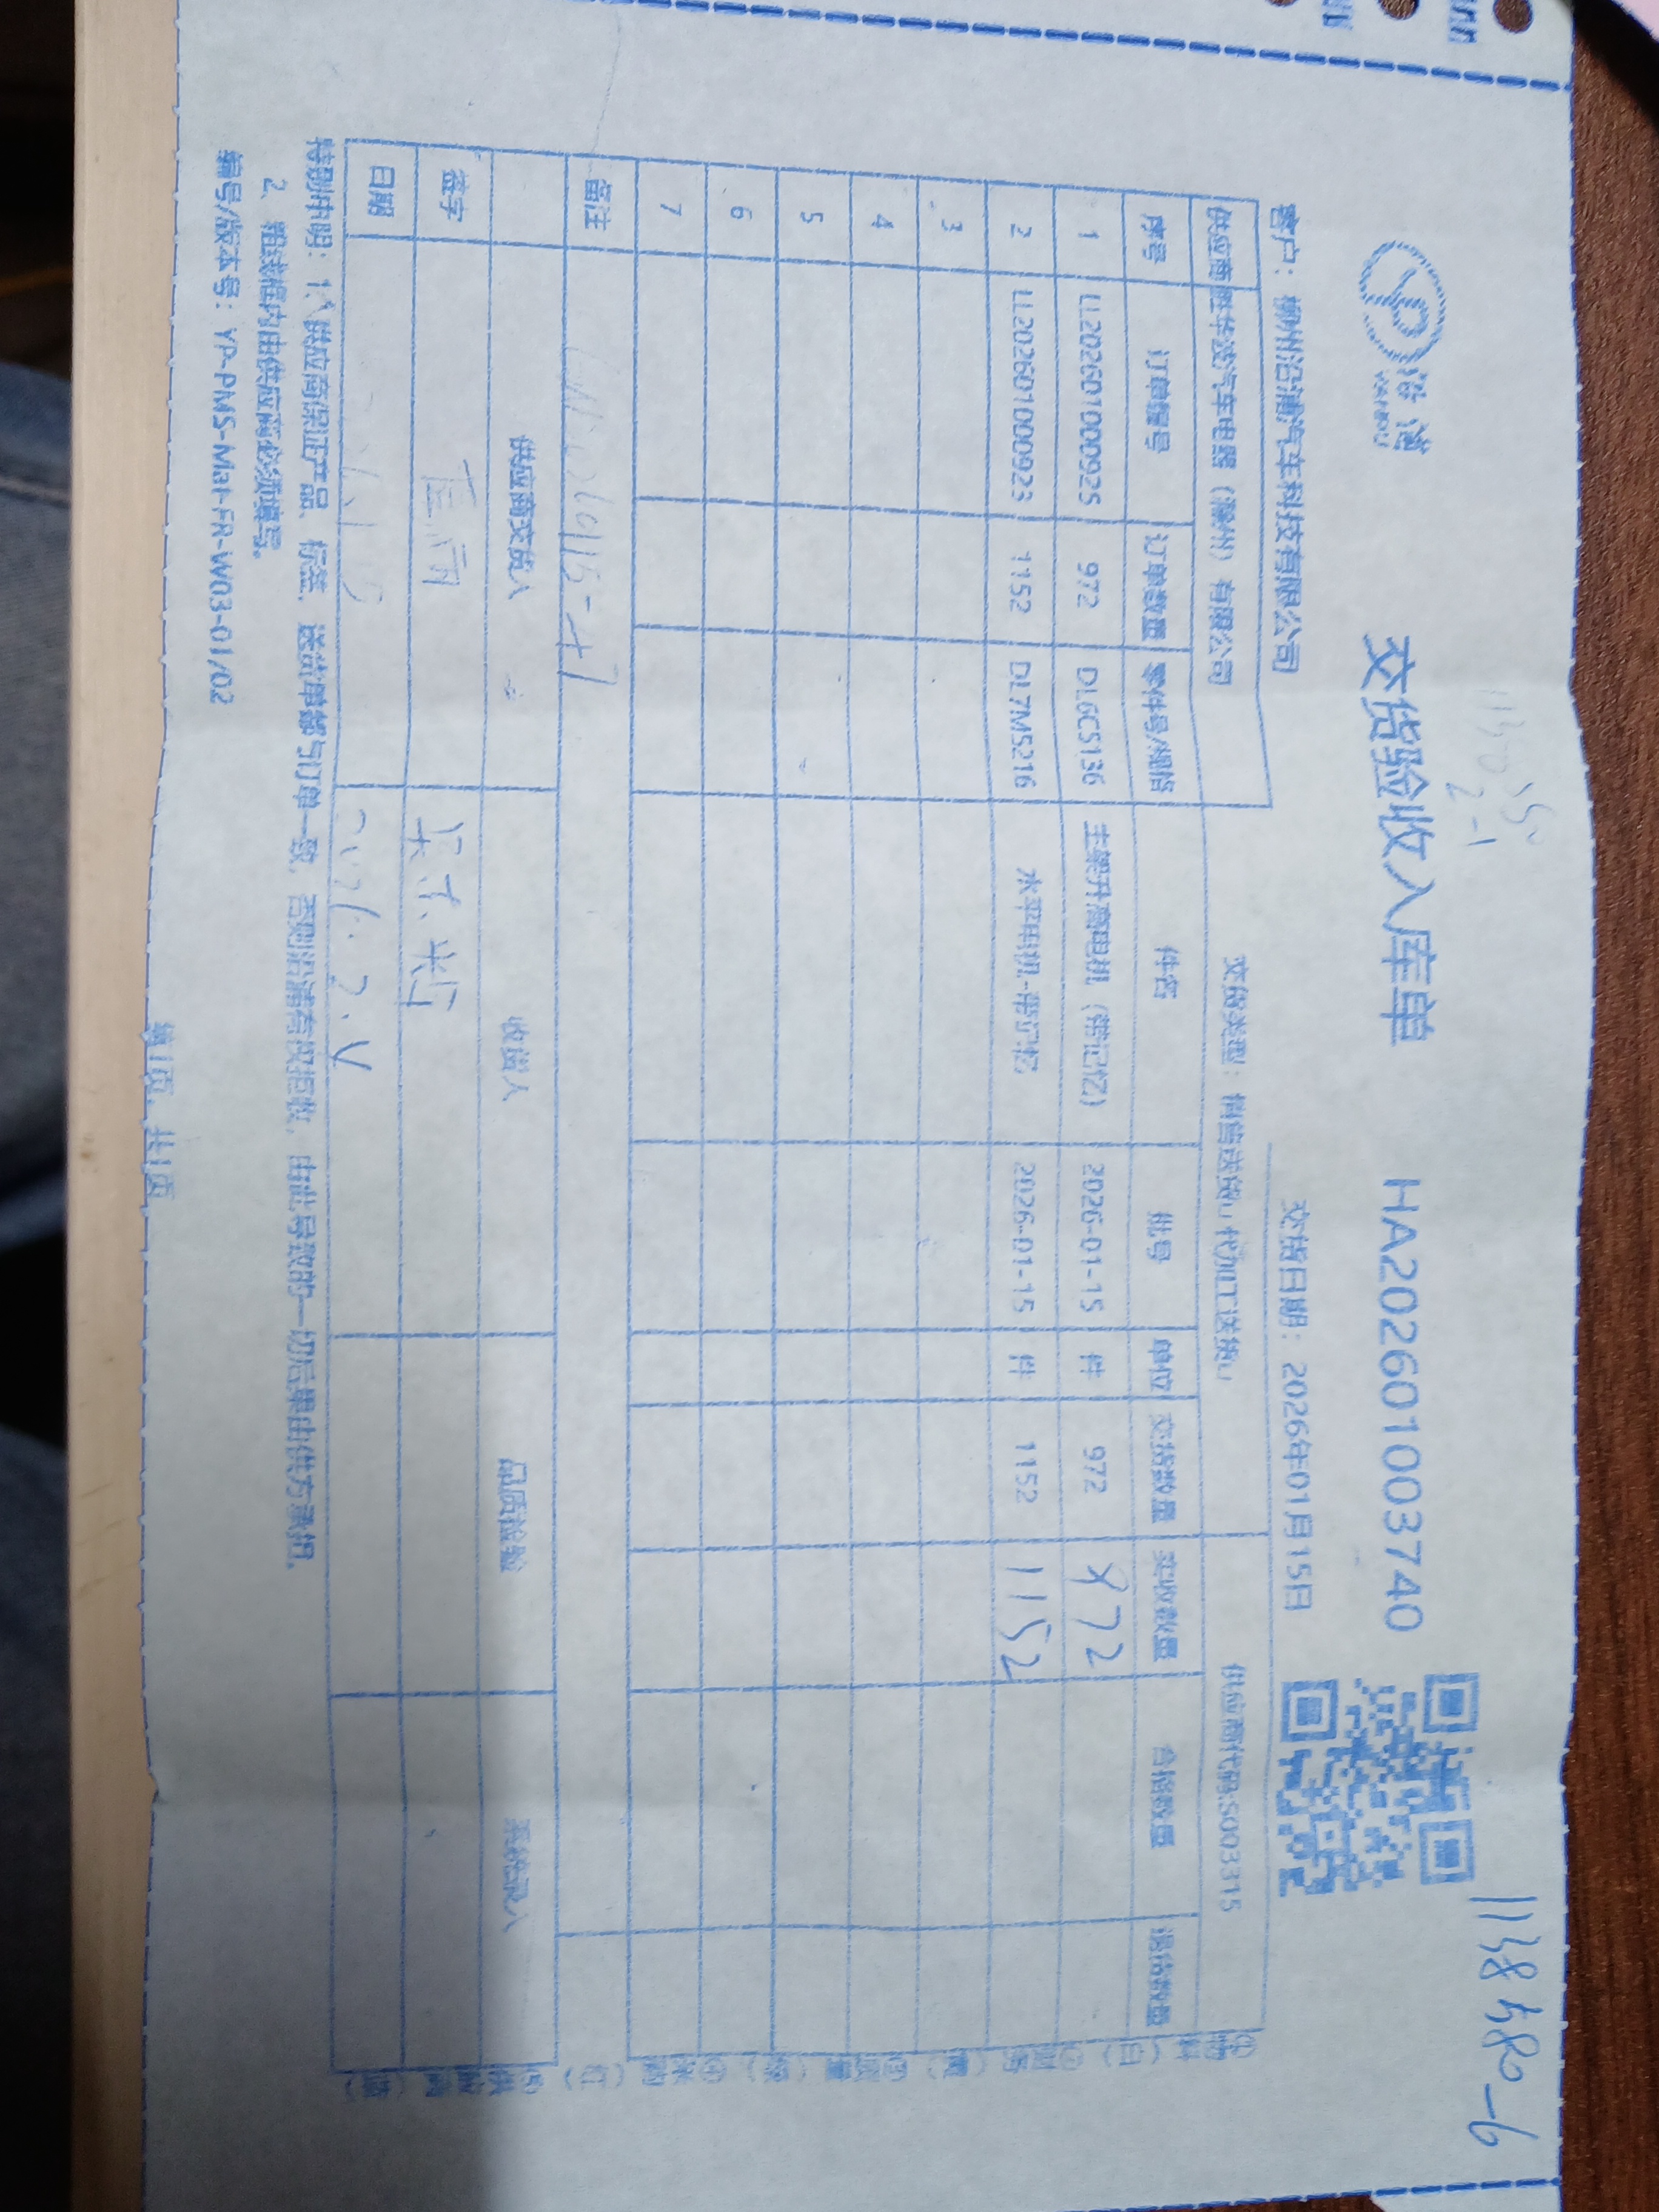 沿浦
交货验收入库单
HA202601003740
1138580-6
客户：柳州沿浦汽车科技有限公司
交货日期：2026年01月15日
供应商 胜华波汽车电器（滁州）有限公司
交货类型：销售送货□ 代加工送货□
供应商代码:S003315
序号 订单编号 订单数量 零件号/规格 件名 批号 单位 交货数量 实收数量 合格数量 退货数量
1 LL202601000925 972 DL6C5136 主驾升高电机（带记忆） 2026-01-15 件 972 972
2 LL202601000923 1152 DL7M5216 水平电机-带记忆 2026-01-15 件 1152 1152
3
4
5
6
7
备注
供应商交货人 收货人 品质检验 系统录入
签字
日期
特别申明：1、供应商保证产品、标签、送货单都与订单一致，否则沿浦有权拒收，由此导致的一切后果由供方承担。
2、粗线框内由供应商必须填写。
编号/版本号：YP-PMS-Mat-FR-W03-01/02
第1页，共1页